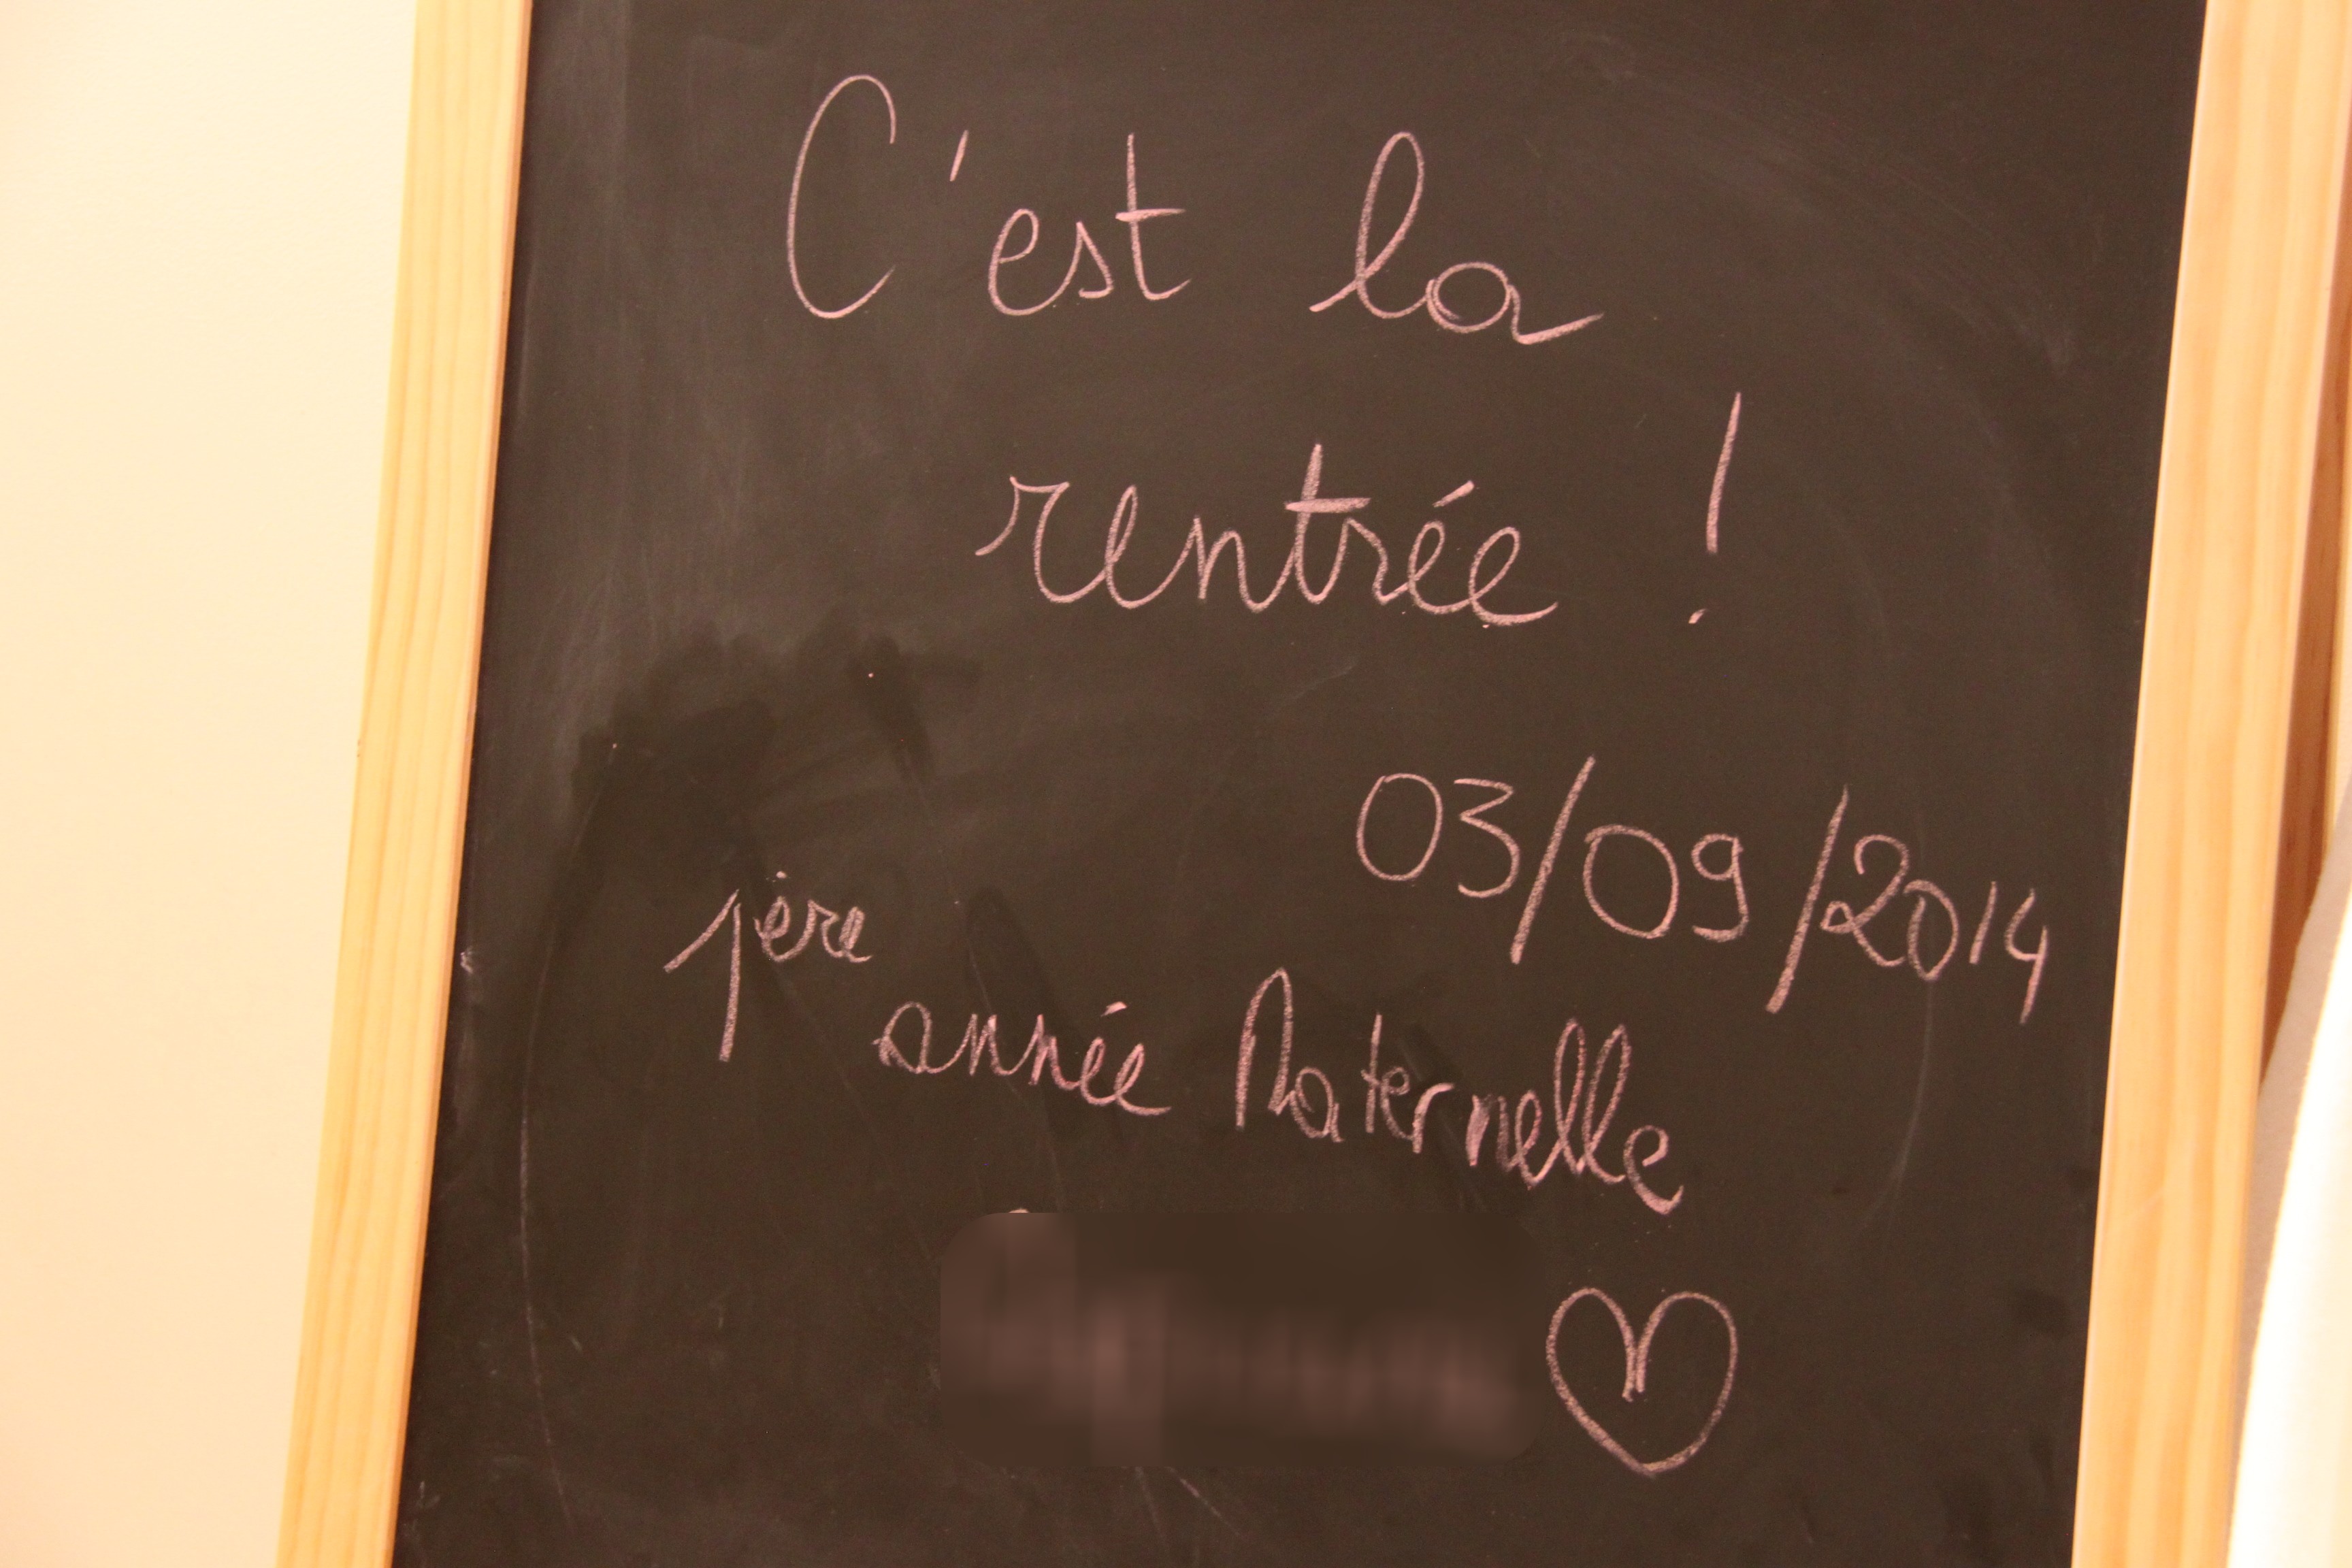 C'est la
rentrée !
03/09/2014
1ère
année Maternelle